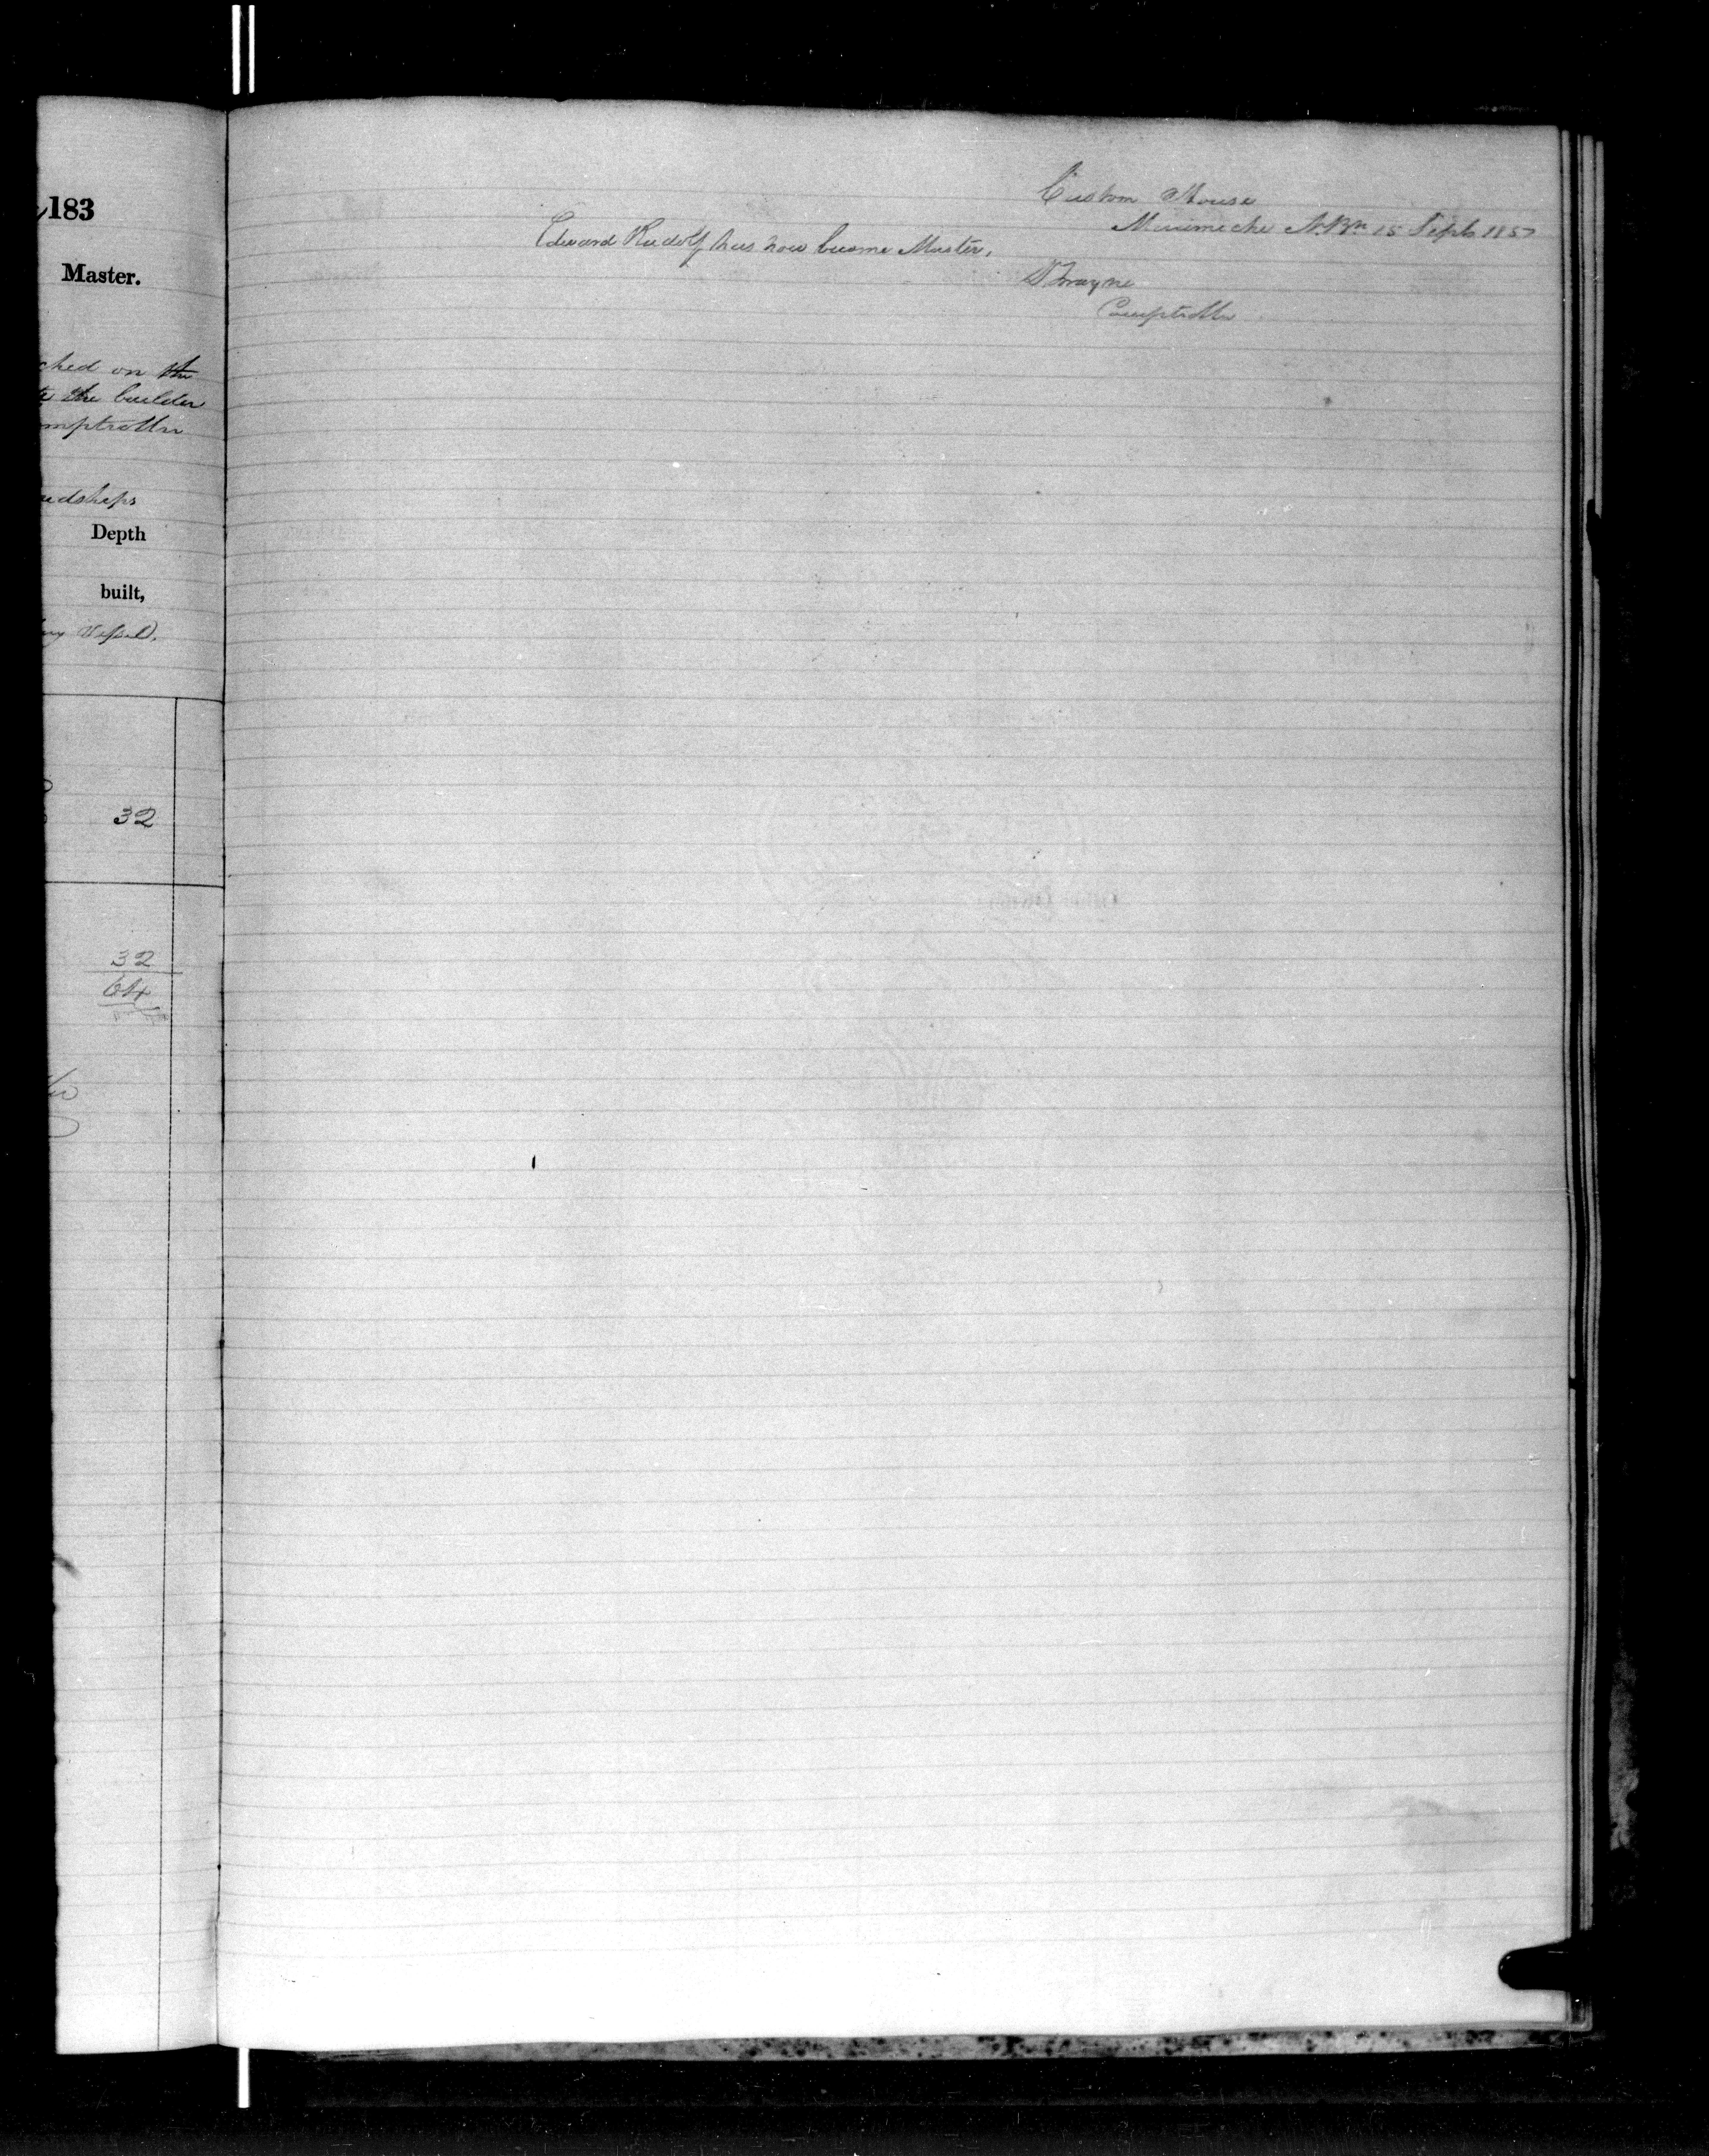 183
Master.
ched on the
the builder
mptroller
dships
Depth
built,
Vessel.
32
32
64
Custom House
Mirimichi N.Bk 15 Septr 1857
Edward Rudolf has now become Master.
Comptroller